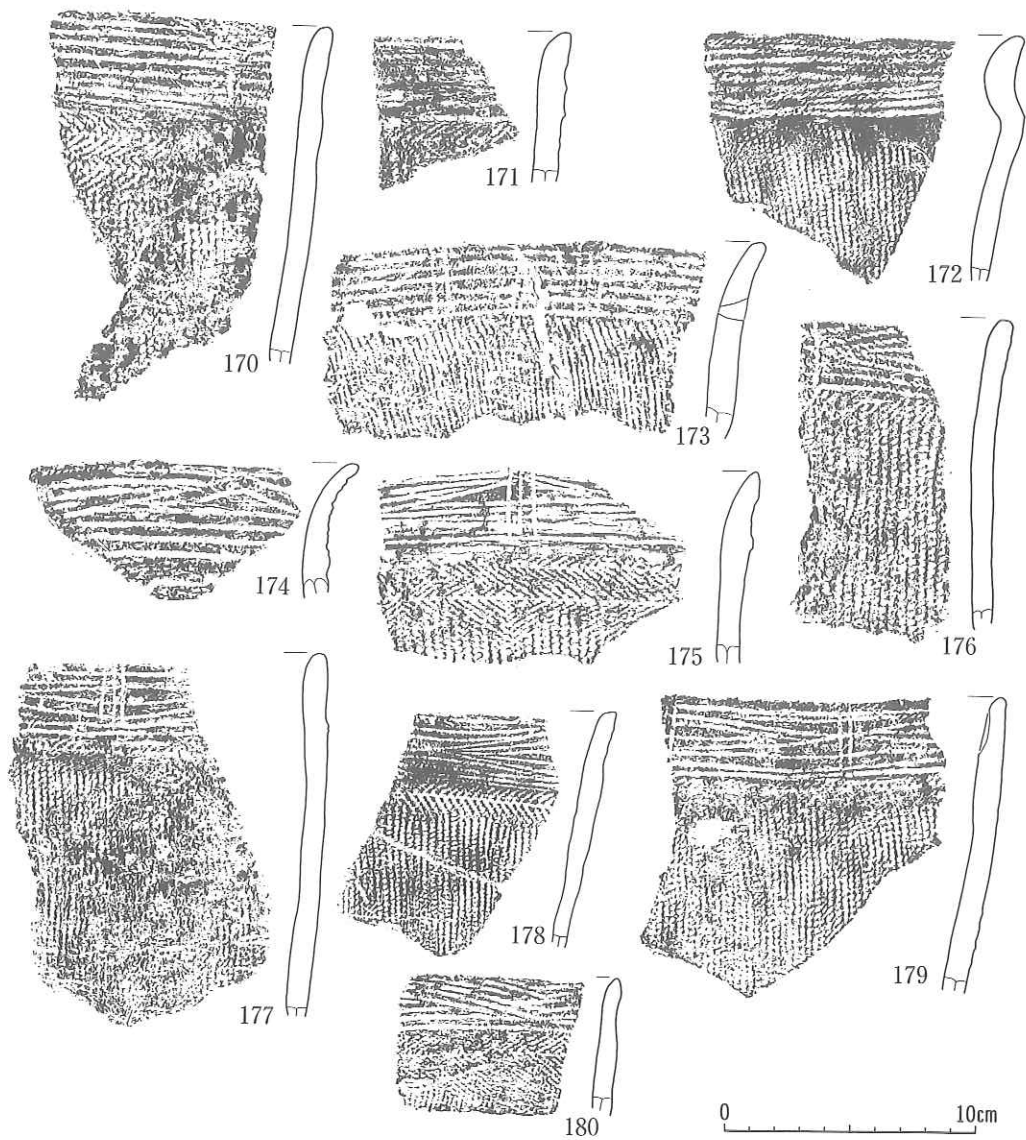 170
171
172
173
174
175
176
177
178
179
180
0 10cm